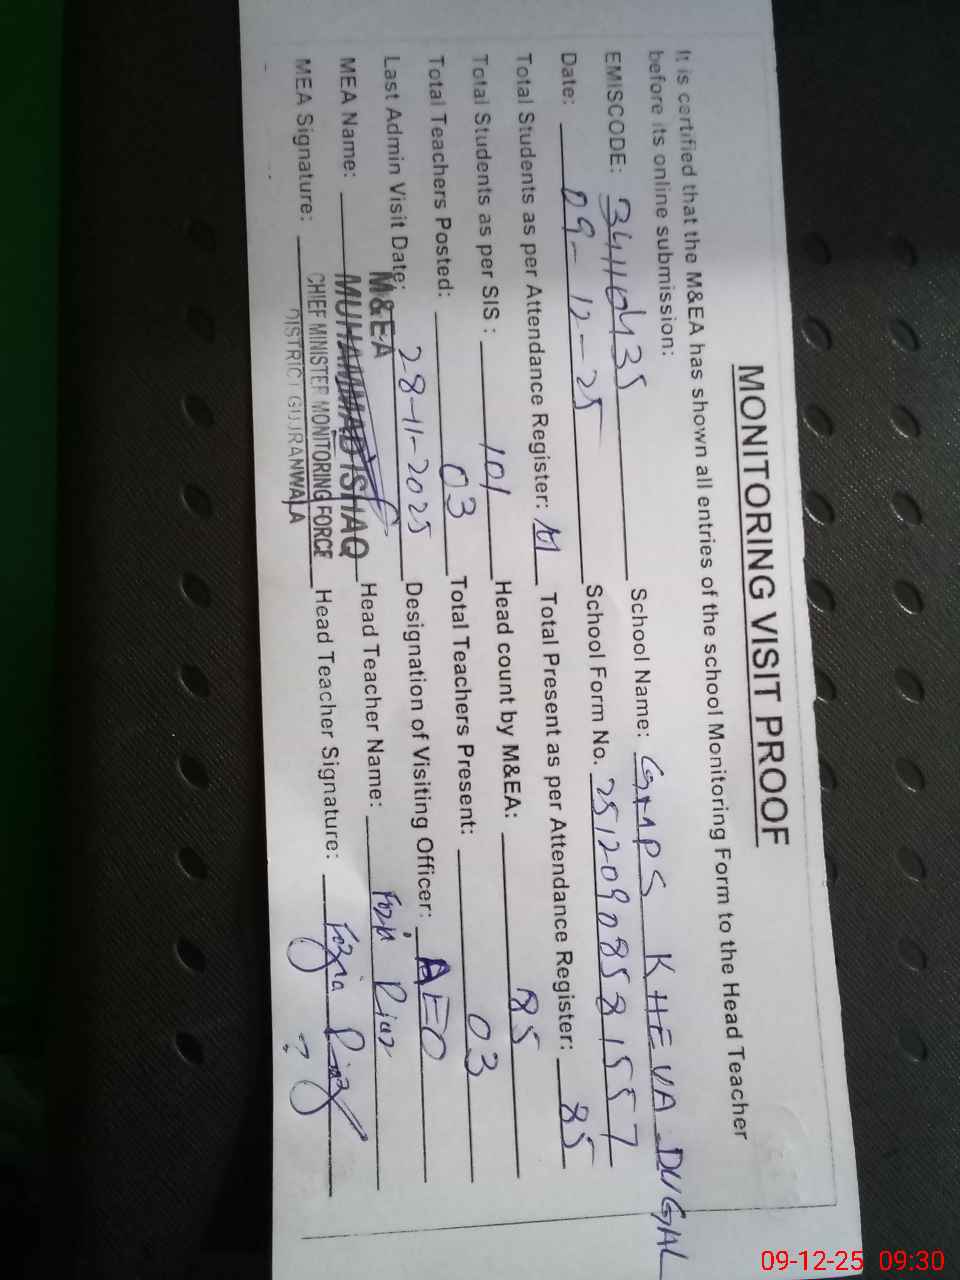 MONITORING VISIT PROOF
It is certified that the M&EA has shown all entries of the school Monitoring Form to the Head Teacher
before its online submission:
EMISCODE: 34110435 School Name: GMPS KHEVA DUGAL
Date: 09-12-25 School Form No. 25120908581557
Total Students as per Attendance Register: Total Present as per Attendance Register: 85
Total Students as per SIS : 101 Head count by M&EA: 85
Total Teachers Posted: 03 Total Teachers Present: 03
Last Admin Visit Date: 28-11-2025 Designation of Visiting Officer: AEO
M&EA
MEA Name: MUHAMMAD ISHAQ Head Teacher Name: Riaz
MEA Signature: CHIEF MINISTER MONITORING FORCE Head Teacher Signature: Fozia Riaz
DISTRICT GUJRANWALA
09-12-25 09:30